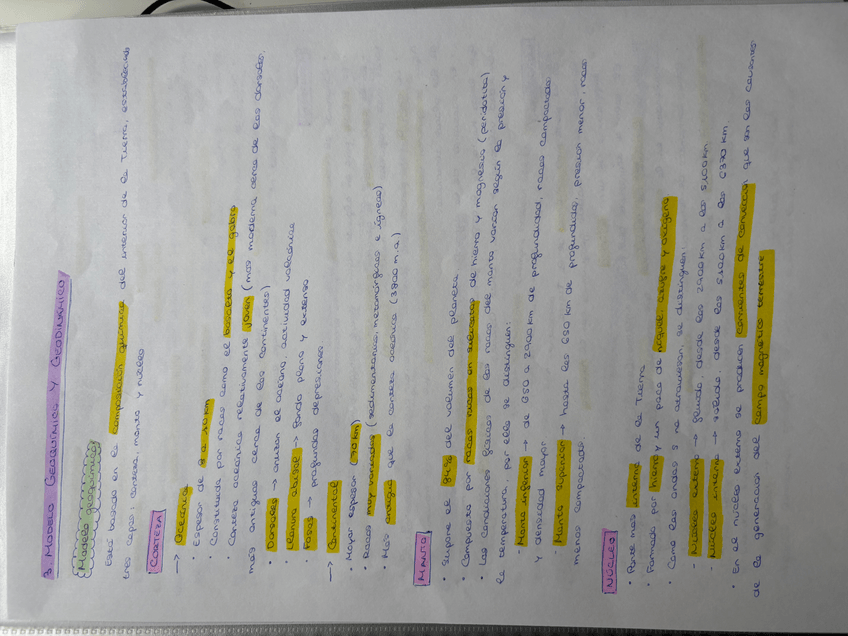 3. MODELO GEOQUÍMICO Y GEODINÁMICO
Modelo geoquímico
Está basado en la composición química del interior de la Tierra, establecido
tres capas: corteza, manto y núcleo
CORTEZA
→ Oceánica
• Espesor de 8 a 10 km
Constituida por rocas como el basalto y el gabro
• Corteza oceánica relativamente joven (mas moderna cerca de las dorsales,
mas antiguas cerca de los continentes)
• Dorsales → cruzan el océano, actividad volcánica
• Llanura abisal → fondo plano y extenso
• Fosas → profundas depresiones
→ Continental
• Mayor espesor (70 km)
• Rocas muy variadas (sedimentarias, metamórficas e ígneas)
• Mas antigua que la corteza oceánica (3800 m.a)
MANTO
• Supone el 84% del volumen del planeta
• Compuesto por rocas ricas en silicatos de hierro y magnesio (peridotita)
• Las condiciones físicas de las rocas del manto varían según la presión y
la temperatura, por ello se distinguen:
- Manto inferior → de 650 a 2900 km de profundidad, rocas compactadas
y densidad mayor
- Manto superior → hasta los 650 km de profundidad, presión menor, rocas
menos compactadas.
NÚCLEO
• Parte mas interna de la Tierra
• Formado por hierro y un poco de níquel, azufre y oxígeno
• Como las ondas S no atraviesan, se distinguen:
- Núcleo externo → fluido, desde los 2900 km a los 5100 km
- Núcleo interno → sólido, desde los 5100 km a los 6370 km
• En el núcleo externo se producen corrientes de convección que son las causantes
de la generación del campo magnético terrestre